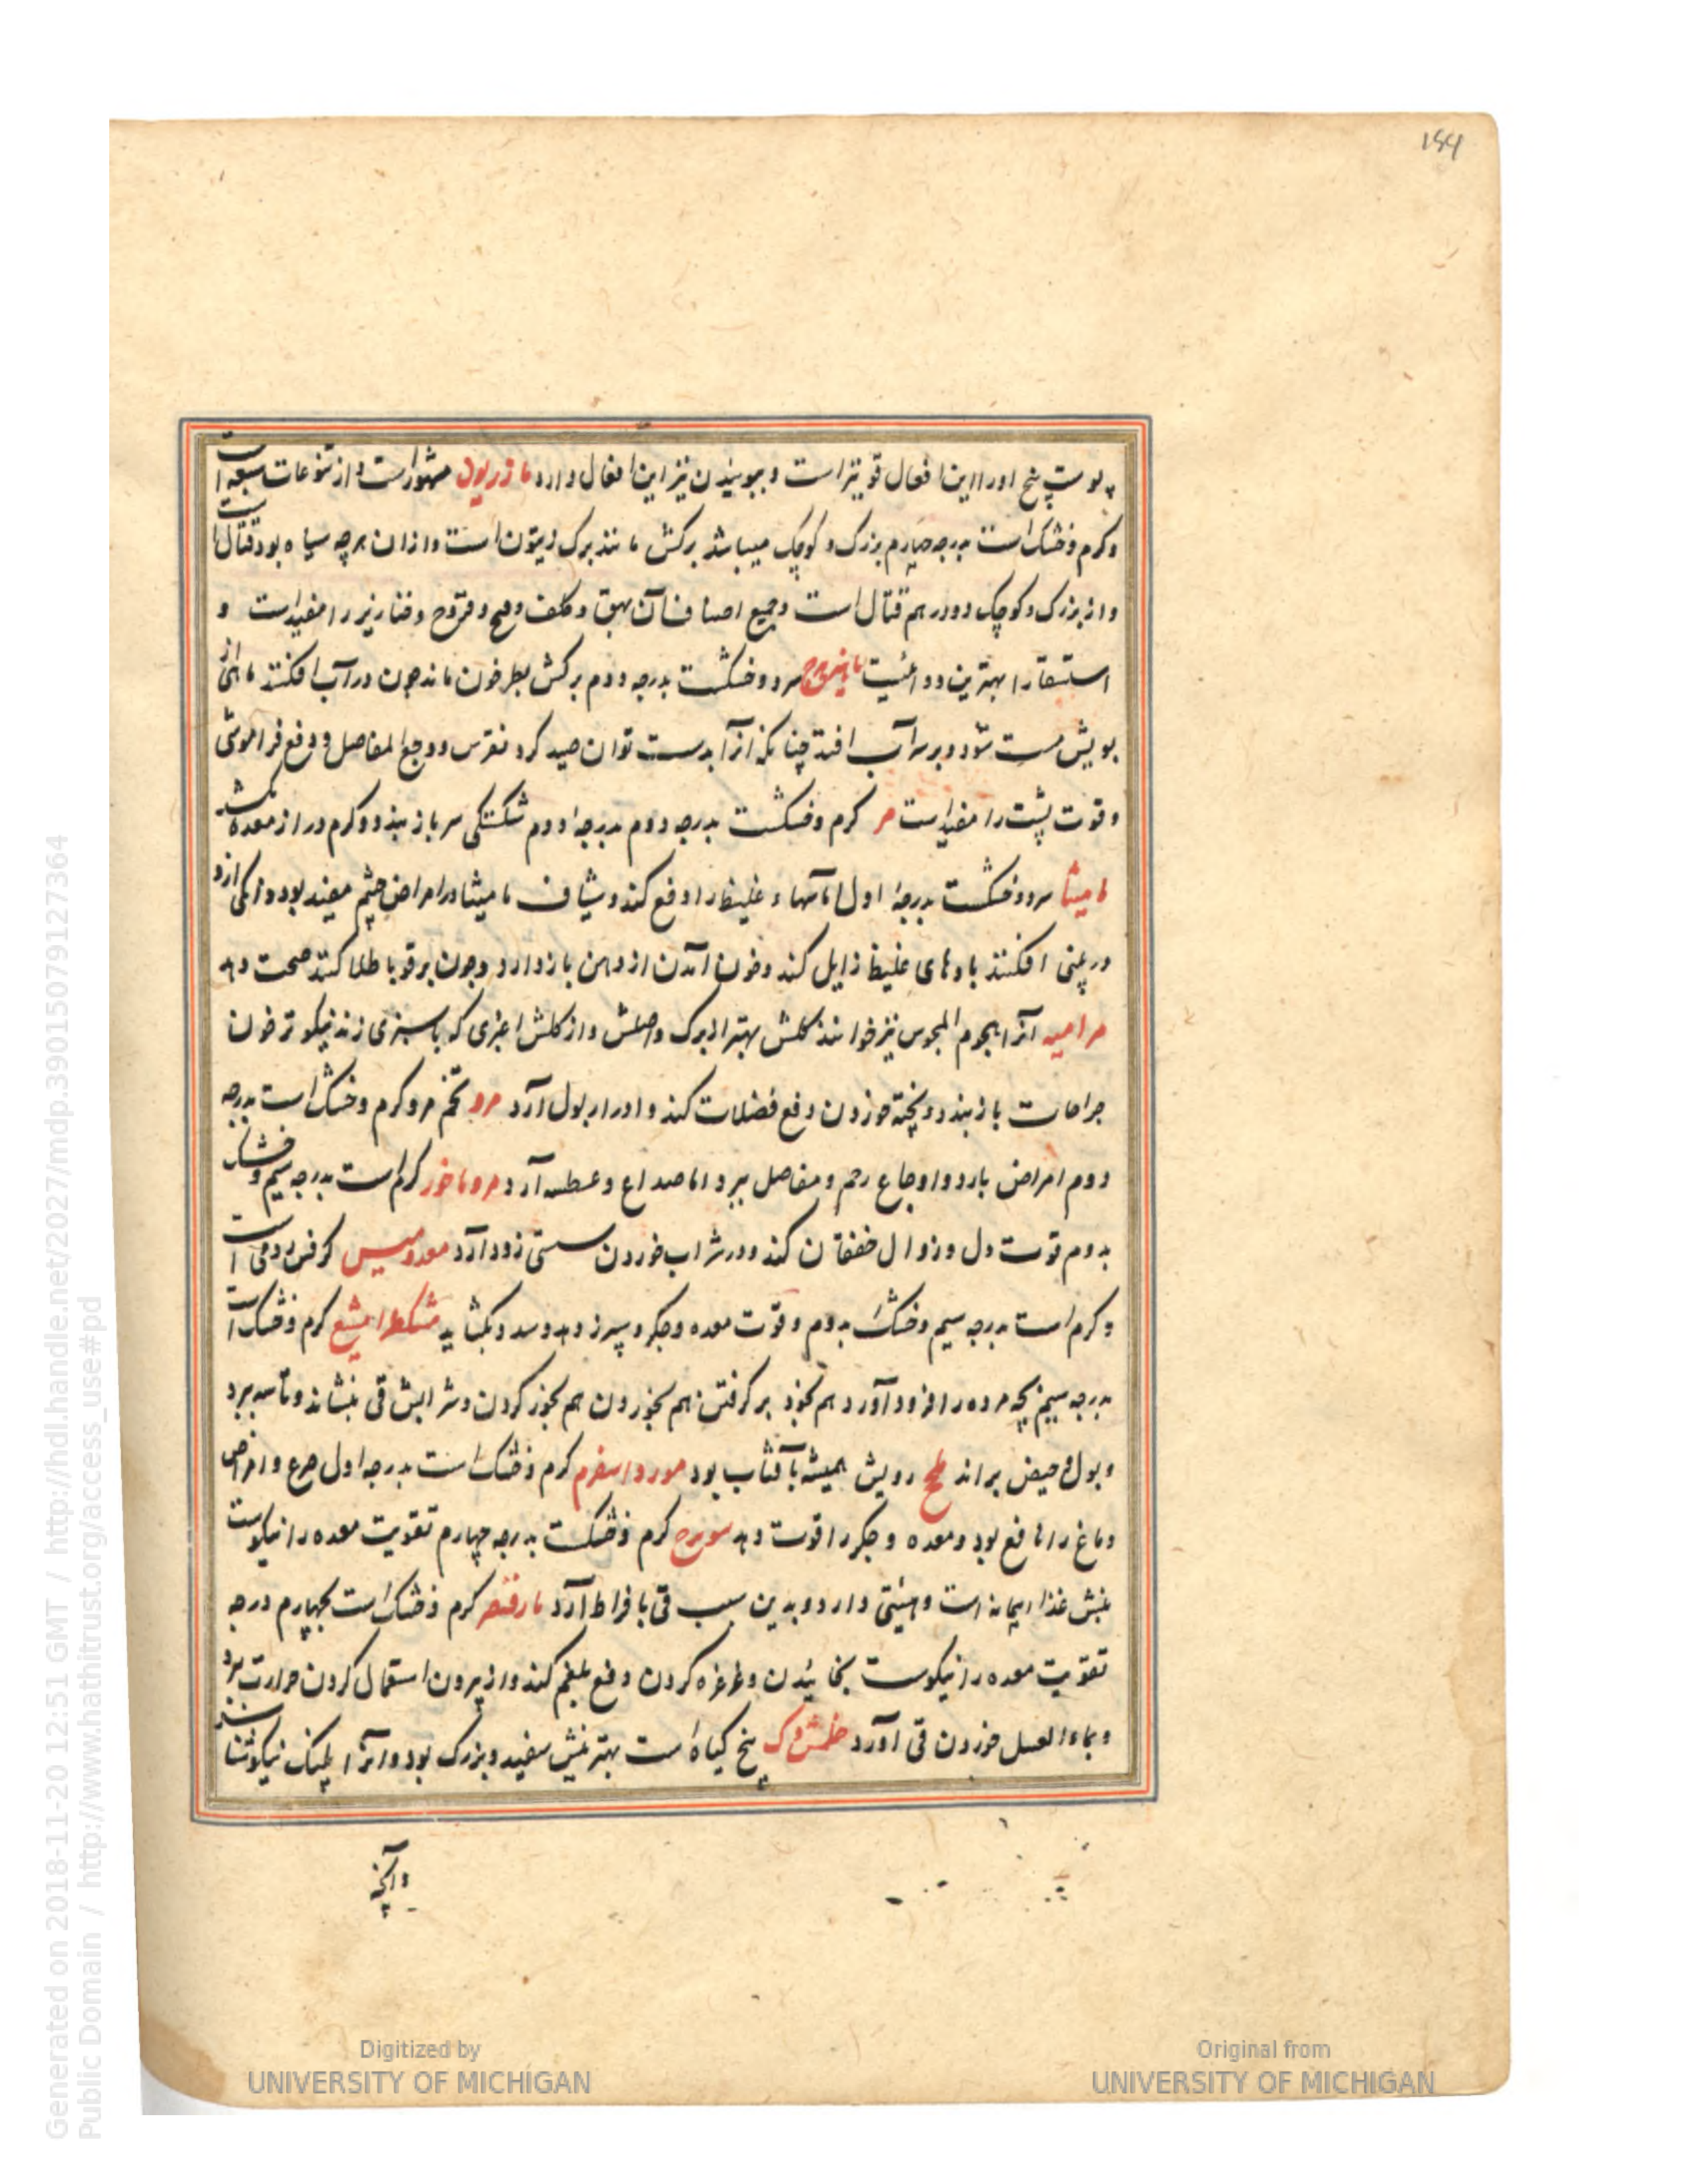 184
پوست بیخ او را این افعال قوی‌تر است و ببوییدن نیز این افعال دارد مازریون مشهور است و از یتوعات سبعه است
و کرم و خشک است بدرجه چهارم بزرک و کوچک میباشد برکش مانند برک زیتون است و از ان هرچه سیاه بود قتال است
و از بزرک و کوچک دو درهم قتال است و جمیع اصناف آن بهق و کلف و قروح و خنازیر را مفید است و
استسقا را بهترین دوائیست سرد و خشکست بدرجه دوم برکش بطرخون ماند چون در آب افکنند ماهی از
بویش مست شود و بر سر آب افتد چنانکه انرا بدست توان صید کرد نقرس و وجع المفاصل و دفع فراموشی
و قوت پشت را مفید است مر کرم و خشکست بدرجه دوم شکستکی سر باز بندد و کرم دراز معده بکشد
مامیثا سرد و خشکست بدرجه اول اماسها غلیظ را دفع کند و شیاف مامیثا در امراض چشم مفید بود و دانکی ازو
در بینی افکنند بادهای غلیظ زایل کند و خون آمدن از دهن باز دارد و چون بر قوبا طلا کنند صحت دهد
مرامیه آنرا بخوم المجوس نیز خوانند کلش بهتر از برک و اصلش و از کلش اغبری که با سبزی زند نیکوتر خون
جراحات باز بندد و پخته خوردن دفع فضلات کند و ادرار بول آرد مرو تخم مرو کرم و خشک است بدرجه
دوم امراض بارد و اوجاع رحم و مفاصل ببرد اما صداع و عطسه آرد مروماخور کرم است بدرجه سیم و خشک
بدوم قوت دل و زوال خفقان کند و در شراب خوردن مستی زود آرد کرفس رومی است
و کرم است بدرجه سیم و خشک بدوم و قوت معده و جکر و سپرز دهد و سدد بکشاید مشکطرامشیع کرم و خشک است
بدرجه سیم بچه مرده را فرود آورد هم بخود بر کرفتن هم بخوردن هم بخور کردن و شرابش قی بنشاند و تاسه ببرد
و بول و حیض براند رویش همیشه بآفتاب بود مورد اسفرم کرم و خشک است بدرجه اول صرع و امراض
دماغ را نافع بود و معده و جکر را قوت دهد کرم و خشکست بدرجه چهارم تقویت معده را نیکوست
است و دارد و بدین سبب قی بافراط آرد کرم و خشک است بچهارم درجه
تقویت معده را نیکوست بخائیدن و غرغره کردن دفع بلغم کند و از بیرون استعمال کردن حرارت برد
و بماء العسل خوردن قی آورد بیخ کیاه است بهترینش سفید و بزرک بود و انرا پلنک نیکو شناسد
وآنچه
Generated on 2018-11-20 12:51 GMT / http://hdl.handle.net/2027/mdp.39015079127364
Public Domain / http://www.hathitrust.org/access_use#pd
Digitized by
UNIVERSITY OF MICHIGAN
Original from
UNIVERSITY OF MICHIGAN